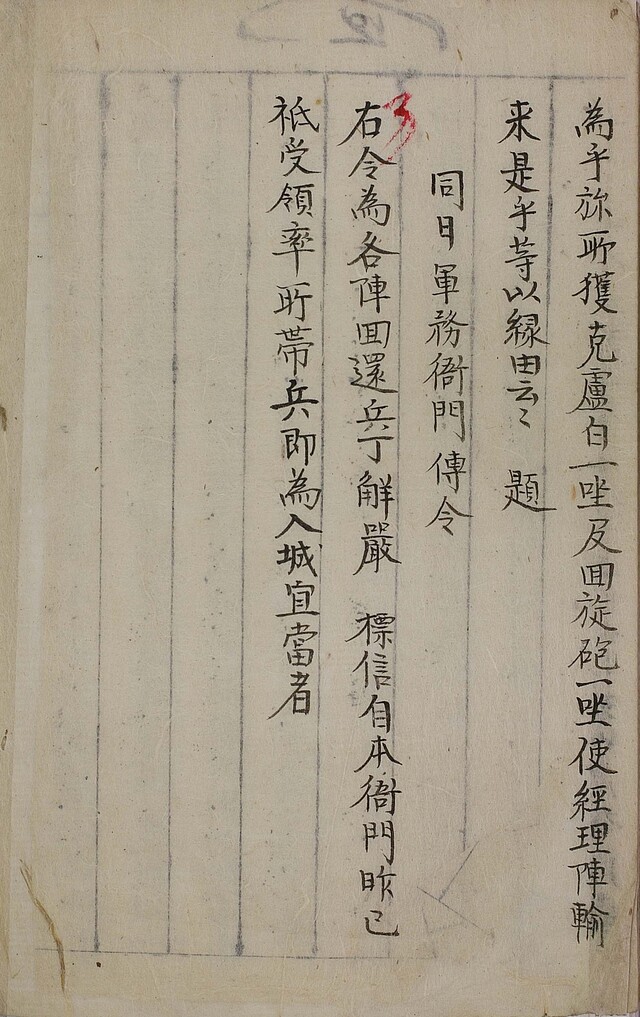 為乎旀所獲克盧白一坐及回旋砲一坐使經理陣輸
来是乎等以緣由云〻 題
同日軍務衙門傳令
右令為各陣回還兵丁解嚴 標信自本衙門昨已
祗受領率所帶兵即為入城宜當者